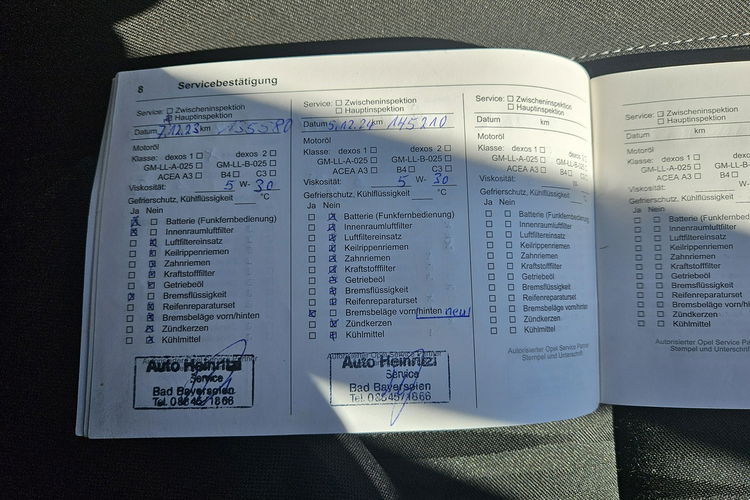 8 Servicebestätigung
Service: ☐ Zwischeninspektion
☐ Hauptinspektion
Datum 7.12.23 km 135580
Motoröl
Klasse: dexos 1 ☐ dexos 2 ☐
GM-LL-A-025 ☐ GM-LL-B-025 ☐
ACEA A3 ☐ B4 ☐ C3 ☐
Viskosität: 5 W- 30
Gefrierschutz, Kühlflüssigkeit °C
Ja Nein
☒ ☐ Batterie (Funkfernbedienung)
☒ ☐ Innenraumluftfilter
☐ ☒ Luftfiltereinsatz
☐ ☒ Keilrippenriemen
☐ ☒ Zahnriemen
☐ ☒ Kraftstofffilter
☐ ☒ Getriebeöl
☒ ☐ Bremsflüssigkeit
☐ ☒ Reifenreparaturset
☐ ☒ Bremsbeläge vorn/hinten
☐ ☒ Zündkerzen
☐ ☒ Kühlmittel
Autorisierter Opel Service Partner
Auto Heinritzi
Service
Bad Bayersoien
Tel. 08845/1866
Service: ☐ Zwischeninspektion
☐ Hauptinspektion
Datum 5.12.24 km 145210
Motoröl
Klasse: dexos 1 ☐ dexos 2 ☐
GM-LL-A-025 ☐ GM-LL-B-025 ☐
ACEA A3 ☐ B4 ☐ C3 ☐
Viskosität: 5 W- 30
Gefrierschutz, Kühlflüssigkeit °C
Ja Nein
☐ ☒ Batterie (Funkfernbedienung)
☐ ☒ Innenraumluftfilter
☐ ☒ Luftfiltereinsatz
☐ ☒ Keilrippenriemen
☐ ☒ Zahnriemen
☐ ☒ Kraftstofffilter
☐ ☒ Getriebeöl
☐ ☒ Bremsflüssigkeit
☐ ☒ Reifenreparaturset
☒ ☐ Bremsbeläge vorn/hinten neu
☐ ☒ Zündkerzen
☐ ☒ Kühlmittel
Autorisierter Opel Service Partner
Auto Heinritzi
Service
Bad Bayersoien
Tel. 08845/1866
Service: ☐ Zwischeninspektion
☐ Hauptinspektion
Datum km
Motoröl
Klasse: dexos 1 ☐ dexos
GM-LL-A-025 ☐ GM-LL-B-025
ACEA A3 ☐ B4 ☐ C3 ☐
Viskosität: W-
Gefrierschutz, Kühlflüssigkeit °C
Ja Nein
☐ ☐ Batterie (Funkfernbedienung)
☐ ☐ Innenraumluftfilter
☐ ☐ Luftfiltereinsatz
☐ ☐ Keilrippenriemen
☐ ☐ Zahnriemen
☐ ☐ Kraftstofffilter
☐ ☐ Getriebeöl
☐ ☐ Bremsflüssigkeit
☐ ☐ Reifenreparaturset
☐ ☐ Bremsbeläge vorn/hinten
☐ ☐ Zündkerzen
☐ ☐ Kühlmittel
Autorisierter Opel Service Partner
Stempel und Unterschrift
Service: ☐ Zwischeninspektion
☐ Hauptinspektion
Datum km
Motoröl
Klasse: dexos 1 ☐ dexos
GM-LL-A-025 ☐ GM-LL-B
ACEA A3 ☐ B4 ☐
Viskosität: W-
Gefrierschutz, Kühlflüssigkeit
Ja Nein
☐ ☐ Batterie (Funkfernbedienung
☐ ☐ Innenraumluftfilter
☐ ☐ Luftfiltereinsatz
☐ ☐ Keilrippenriemen
☐ ☐ Zahnriemen
☐ ☐ Kraftstofffilter
☐ ☐ Getriebeöl
☐ ☐ Bremsflüssigkeit
☐ ☐ Reifenreparaturset
☐ ☐ Bremsbeläge vorn/hinten
☐ ☐ Zündkerzen
☐ ☐ Kühlmittel
Autorisierter Opel Service Partner
Stempel und Unterschrift